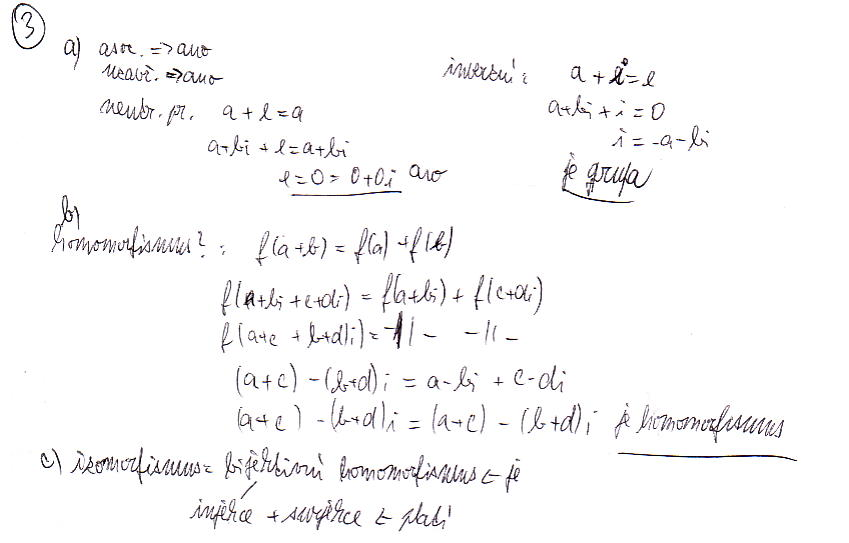 3
a) asoc. => ano
uzavř. => ano
neutr. pr. a + e = a
a+bi + e = a+bi
e = 0 = 0+0i ano
inverzní: a + i = e
a+bi + i = 0
i = -a-bi
je grupa
b)
homomorfismus? : f(a+b) = f(a) + f(b)
f(a+bi + c+di) = f(a+bi) + f(c+di)
f(a+c + (b+d)i) = -11- -11-
(a+c) - (b+d)i = a-bi + c-di
(a+c) - (b+d)i = (a+c) - (b+d)i je homomorfismus
c) izomorfismus = bijektivní homomorfismus ← je
injekce + surjekce ← platí